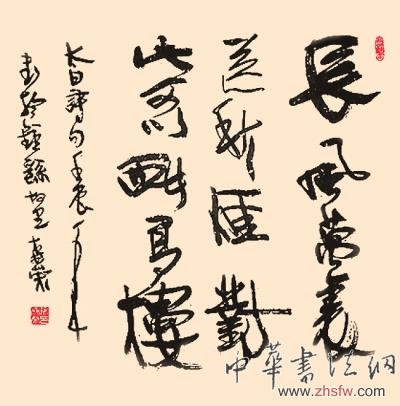 長風萬裏
送秋雁對
此可以酣高樓
太白詩句壬辰
書於鍾繇故里
中華書法網
www.zhsfw.com